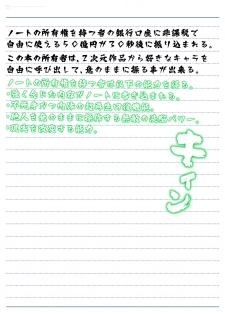 ノートの所有権を持つ者の銀行口座に非課税で
自由に使える50億円が30秒後に振り込まれる。
この本の所有者は、2次元作品から好きなキャラを
自由に呼び出して、意のままに操る事が出来る。
ノートの所有権を持つ者は以下の能力を得る。
・強く念じた内容がノートに書き込まれる。
・不死身かつ肉体の超再生研復機能。
・他人を意のままに操作する無敵の洗脳パワー。
・現実を改変する能力。
キィン